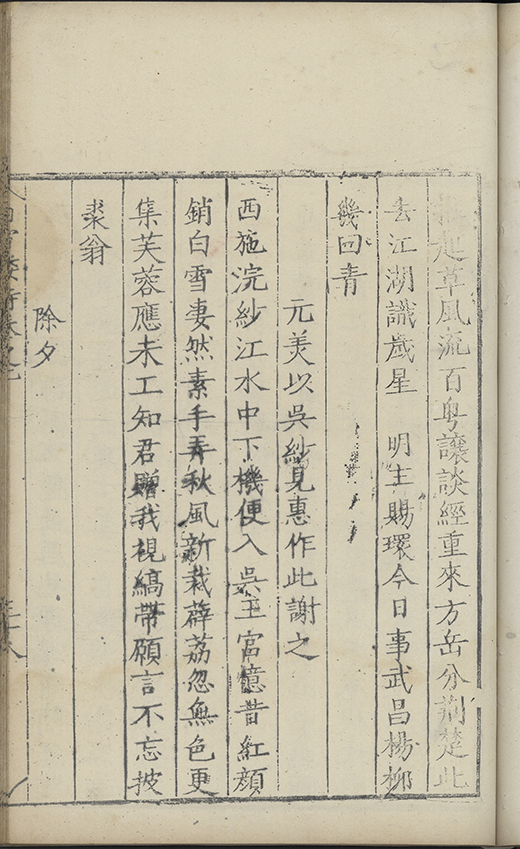 起草風流百粵讓談經重來方岳分荆楚此
去江湖識歲星　明主賜環今日事武昌楊柳
幾回青
元美以吳紗見惠作此謝之
西施浣紗江水中下機便入吳王宮憶昔紅顏
銷白雪妻然素手弄秋風新裁薜荔忽無色更
集芙蓉應未工知君贈我視縞帶願言不忘披
裘翁
除夕